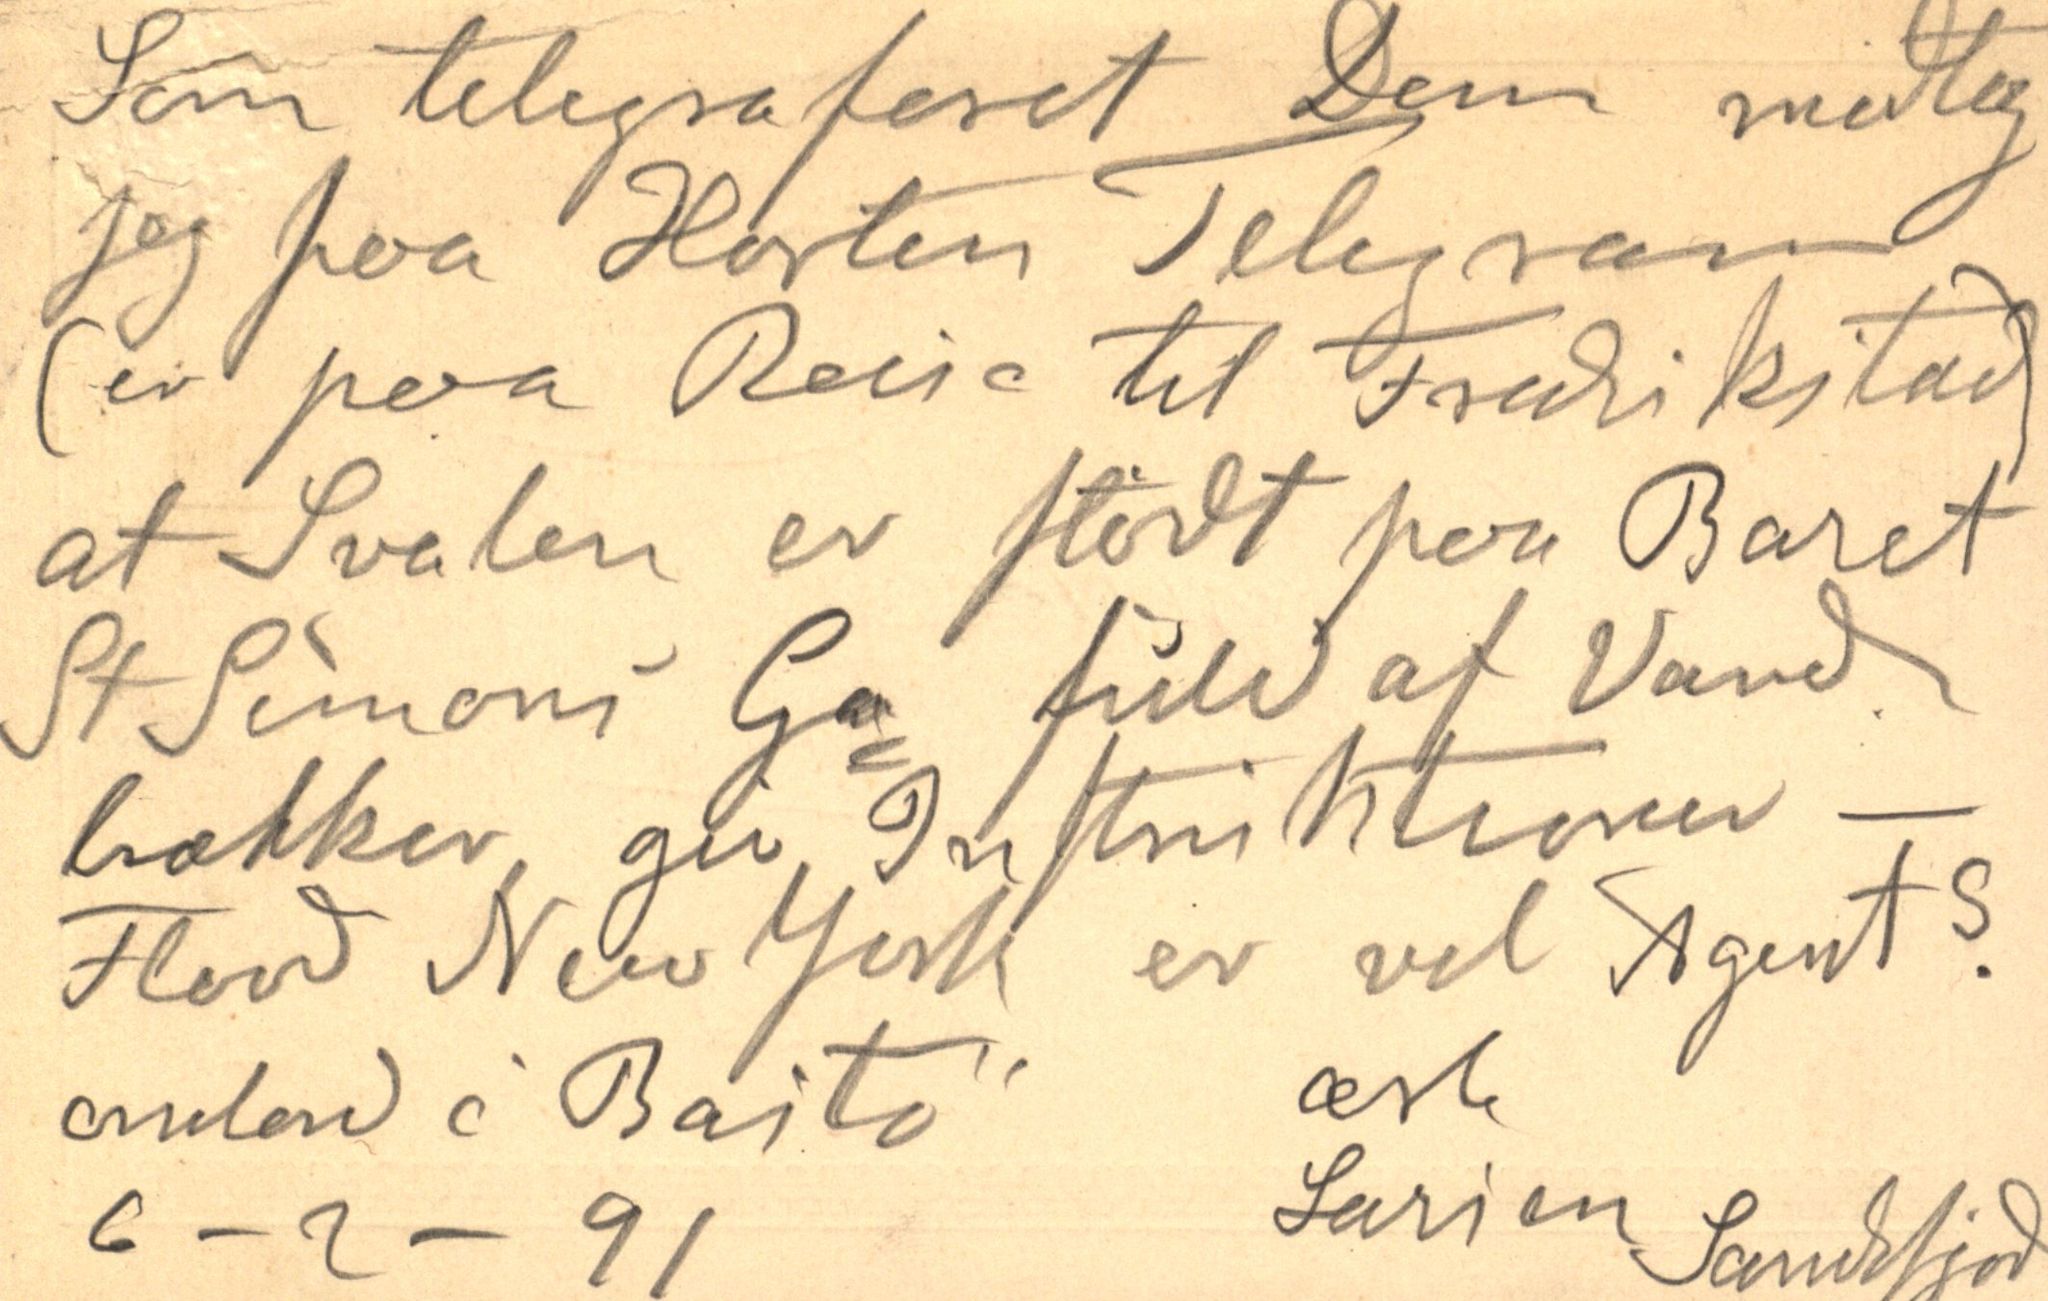 Som telegraferet Dem modtog
jeg paa Horten Telegram
(er paa Reise til Fredrikstad)
at Svalen er stödt paa Baret
St Simons Ga fuld af Vand
lrækker, giv Instruktioner —
Flood New York er vel Agent?
ombord i Bastö ærb
Larsen Sandefjord
6 - 2 - 91